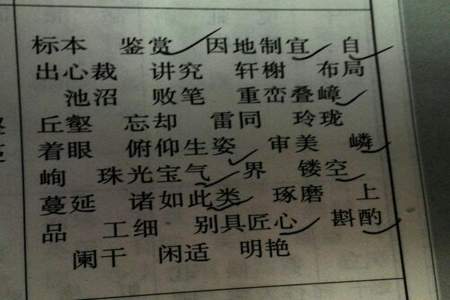 标本 鉴赏 因地制宜 自
出心裁 讲究 轩榭 布局
池沼 败笔 重峦叠嶂
丘壑 忘却 雷同 玲珑
着眼 俯仰生姿 审美 嶙
峋 珠光宝气 界 镂空
蔓延 诸如此类 琢磨 上
品 工细 别具匠心 斟酌
阑干 闲适 明艳